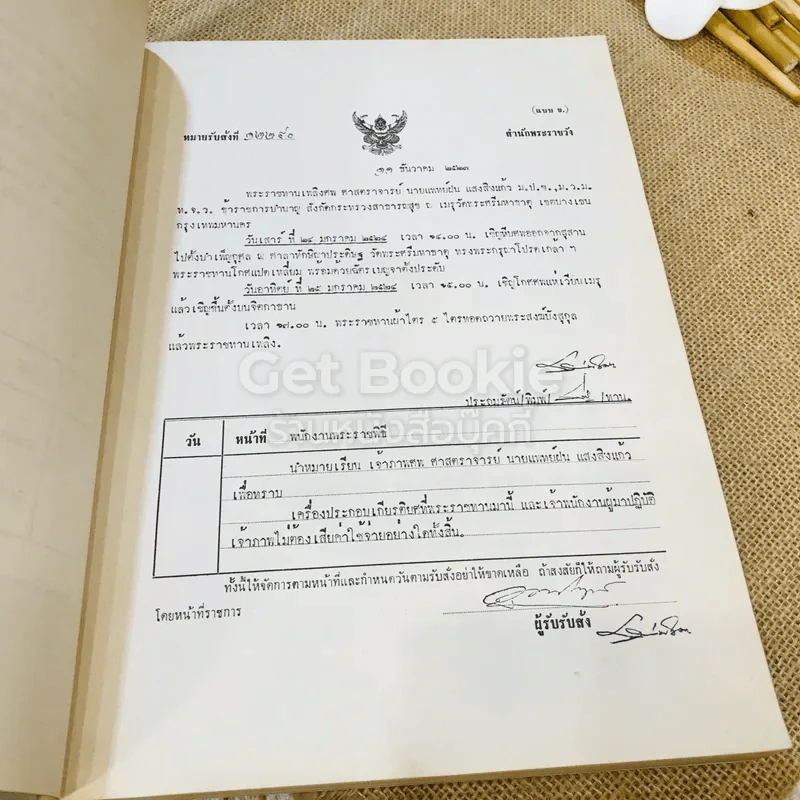 (แบบ ข.)
หมายรับสั่งที่ ๑๒๒๕๐
สำนักพระราชวัง
๑๑ ธันวาคม ๒๕๒๓
พระราชทานเพลิงศพ ศาสตราจารย์ นายแพทย์ฝน แสงสิงแก้ว ม.ป.ช.,ม.ว.ม.
ท.จ.ว. ข้าราชการบำนาญ สังกัดกระทรวงสาธารณสุข ณ เมรุวัดพระศรีมหาธาตุ เขตบางเขน
กรุงเทพมหานคร
วันเสาร์ ที่ ๒๔ มกราคม ๒๕๒๔ เวลา ๑๔.๐๐ น. เชิญหีบศพออกจากสุสาน
ไปตั้งบำเพ็ญกุศล ณ ศาลาทักษิญาประดิษฐ วัดพระศรีมหาธาตุ ทรงพระกรุณาโปรดเกล้า ฯ
พระราชทานโกศแปดเหลี่ยม พร้อมด้วยฉัตรเบญจาตั้งประดับ
วันอาทิตย์ ที่ ๒๕ มกราคม ๒๕๒๔ เวลา ๑๕.๐๐ น. เชิญโกศศพแห่เวียนเมรุ
แล้วเชิญขึ้นตั้งบนจิตกาธาน
เวลา ๑๗.๐๐ น. พระราชทานผ้าไตร ๕ ไตรทอดถวายพระสงฆ์บังสุกุล
แล้วพระราชทานเพลิง.
Get Bookie
ร้านหนังสือบุ๊คกี้
ประถมรัตน์/พิมพ์/ /ทาน.
วัน หน้าที่ พนักงานพระราชพิธี
นำหมายเรียน เจ้าภาพศพ ศาสตราจารย์ นายแพทย์ฝน แสงสิงแก้ว
เพื่อทราบ
เครื่องประกอบเกียรติยศที่พระราชทานมานี้ และเจ้าพนักงานผู้มาปฏิบัติ
เจ้าภาพไม่ต้องเสียค่าใช้จ่ายอย่างใดทั้งสิ้น.
ทั้งนี้ให้จัดการตามหน้าที่และกำหนดวันตามรับสั่งอย่าให้ขาดเหลือ ถ้าสงสัยก็ให้ถามผู้รับรับสั่ง
โดยหน้าที่ราชการ
ผู้รับรับสั่ง